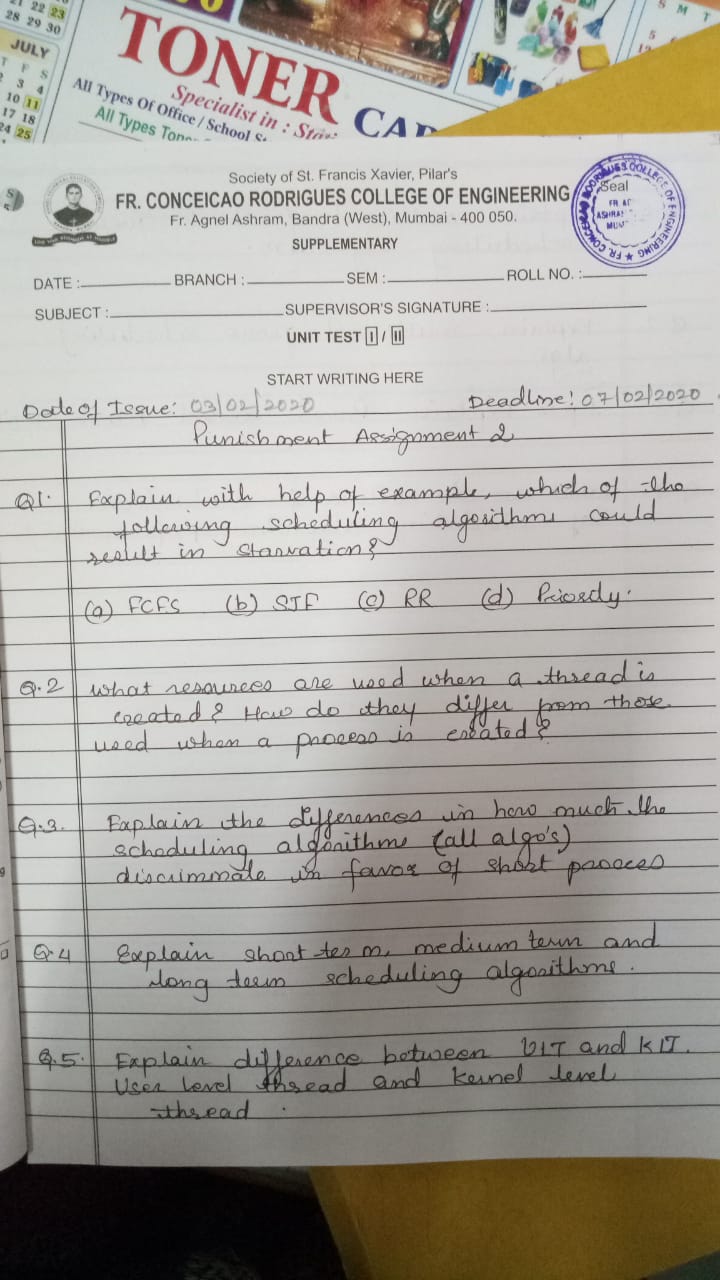 21 22 23
28 29 30
JULY
T F S
2 3 4
10 11
17 18
24 25
TONER
Specialist in :
All Types Of Office / School
All Types
S M T
5
Society of St. Francis Xavier, Pilar's
FR. CONCEICAO RODRIGUES COLLEGE OF ENGINEERING
Fr. Agnel Ashram, Bandra (West), Mumbai - 400 050.
Seal
SUPPLEMENTARY
DATE : BRANCH : SEM : ROLL NO. :
SUBJECT : SUPERVISOR'S SIGNATURE :
UNIT TEST I / II
START WRITING HERE
Date of Issue: 03/02/2020 Deadline: 07/02/2020
Punishment Assignment 2
Q1. Explain with help of example, which of the
following scheduling algorithms could
result in starvation?
(a) FCFS (b) SJF (c) RR (d) Priority.
Q.2 What resources are used when a thread is
created? How do they differ from those
used when a process is created?
Q.3. Explain the differences in how much the
scheduling algorithms (all algo's)
discriminate in favor of short process
Q.4 Explain short term, medium term and
long term scheduling algorithms.
Q.5. Explain difference between ULT and KLT.
User level thread and kernel level
thread.